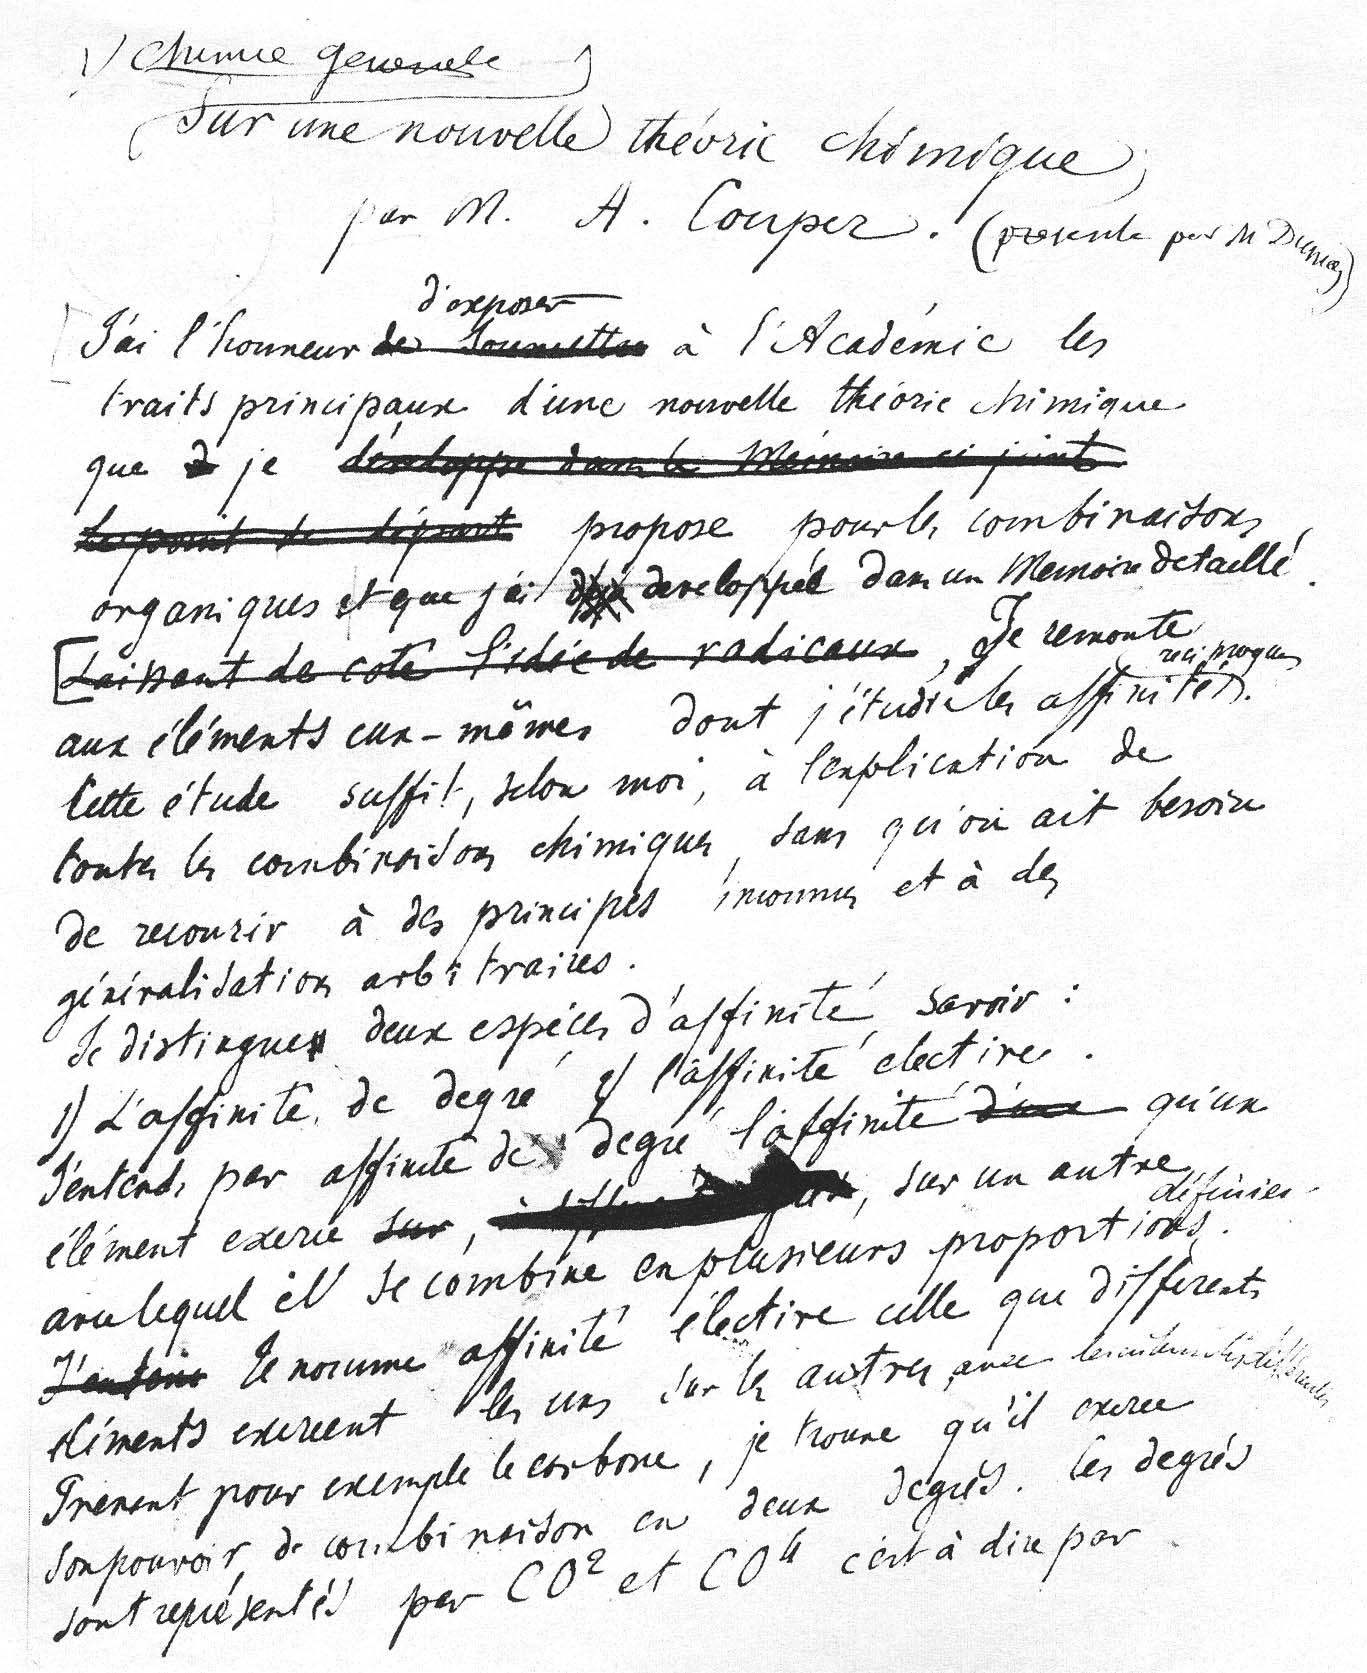 1/ Chimie generale
Sur une nouvelle théorie chimique
par M. A. Couper. (presente par M Dumas)
d'exposer
J'ai l'honneur de Soumettre à l'Académie les
traits principaux d'une nouvelle théorie chimique
que je développe dans le Mémoire ci joint
Le point de départ propose pour les combinaisons
organiques et que j'ai déjà developpée dans un Memoire détaillé.
[Laissant de coté l'idée de radicaux, Je remonte
reciproques
aux éléments eux-mêmes dont j'étudie les affinités.
Cette étude suffit, selon moi, à l'explication de
toutes les combinaisons chimiques, sans qu'on ait besoin
de recourir à des principes inconnus et à des
généralisations arbitraires.
Je distingue deux espéces d'affinité savoir :
1) L'affinité de degré 2) l'affinité elective.
J'entends par affinité de degré l'affinité d'une qu'un
élément exerce sur, sur un autre
définies.
avec lequel il se combine en plusieurs proportions.
J'entens Je nomme affinité élective celle que différents
éléments exercent les uns sur les autres avec des intensités différentes
Prenant pour exemple le carbone, je trouve qu'il exerce
son pouvoir de combinaison en deux degrés. Ces degrés
sont représentés par CO² et CO⁴ c'est à dire par